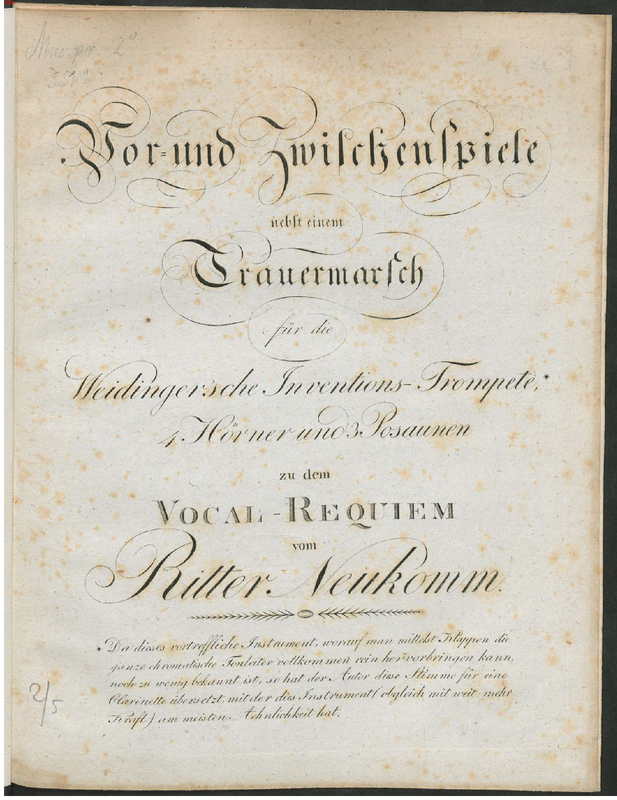 Mus. pr. 2°
Vor- und Zwischenspiele
nebst einem
Trauermarsch
für die
Weidingersche Inventions-Trompete,*
4 Hörner und 3 Posaunen
zu dem
VOCAL-REQUIEM
vom
Ritter Neukomm.
* Da dieses vortreffliche Instrument, worauf man mittelst Klappen die
ganze chromatische Tonleiter vollkommen rein hervorbringen kann,
noch zu wenig bekannt ist, so hat der Autor diese Stimme für eine
Clarinette übersetzt, mit der dies Instrument (obgleich mit weit mehr
Kraft) am meisten Aehnlichkeit hat.
2/5